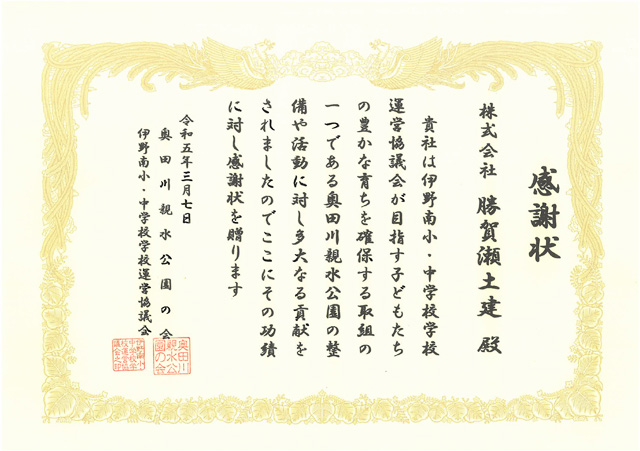 感謝状
株式会社 勝賀瀬土建 殿
貴社は伊野南小・中学校学校
運営協議会が目指す子どもたち
の豊かな育ちを確保する取組の
一つである奥田川親水公園の整
備や活動に対し多大なる貢献を
されましたのでここにその功績
に対し感謝状を贈ります
令和五年三月七日
奥田川親水公園の会
伊野南小・中学校学校運営協議会
奥田川
親水公
園の会
伊野南小
中学校学
校運営協
議会之印